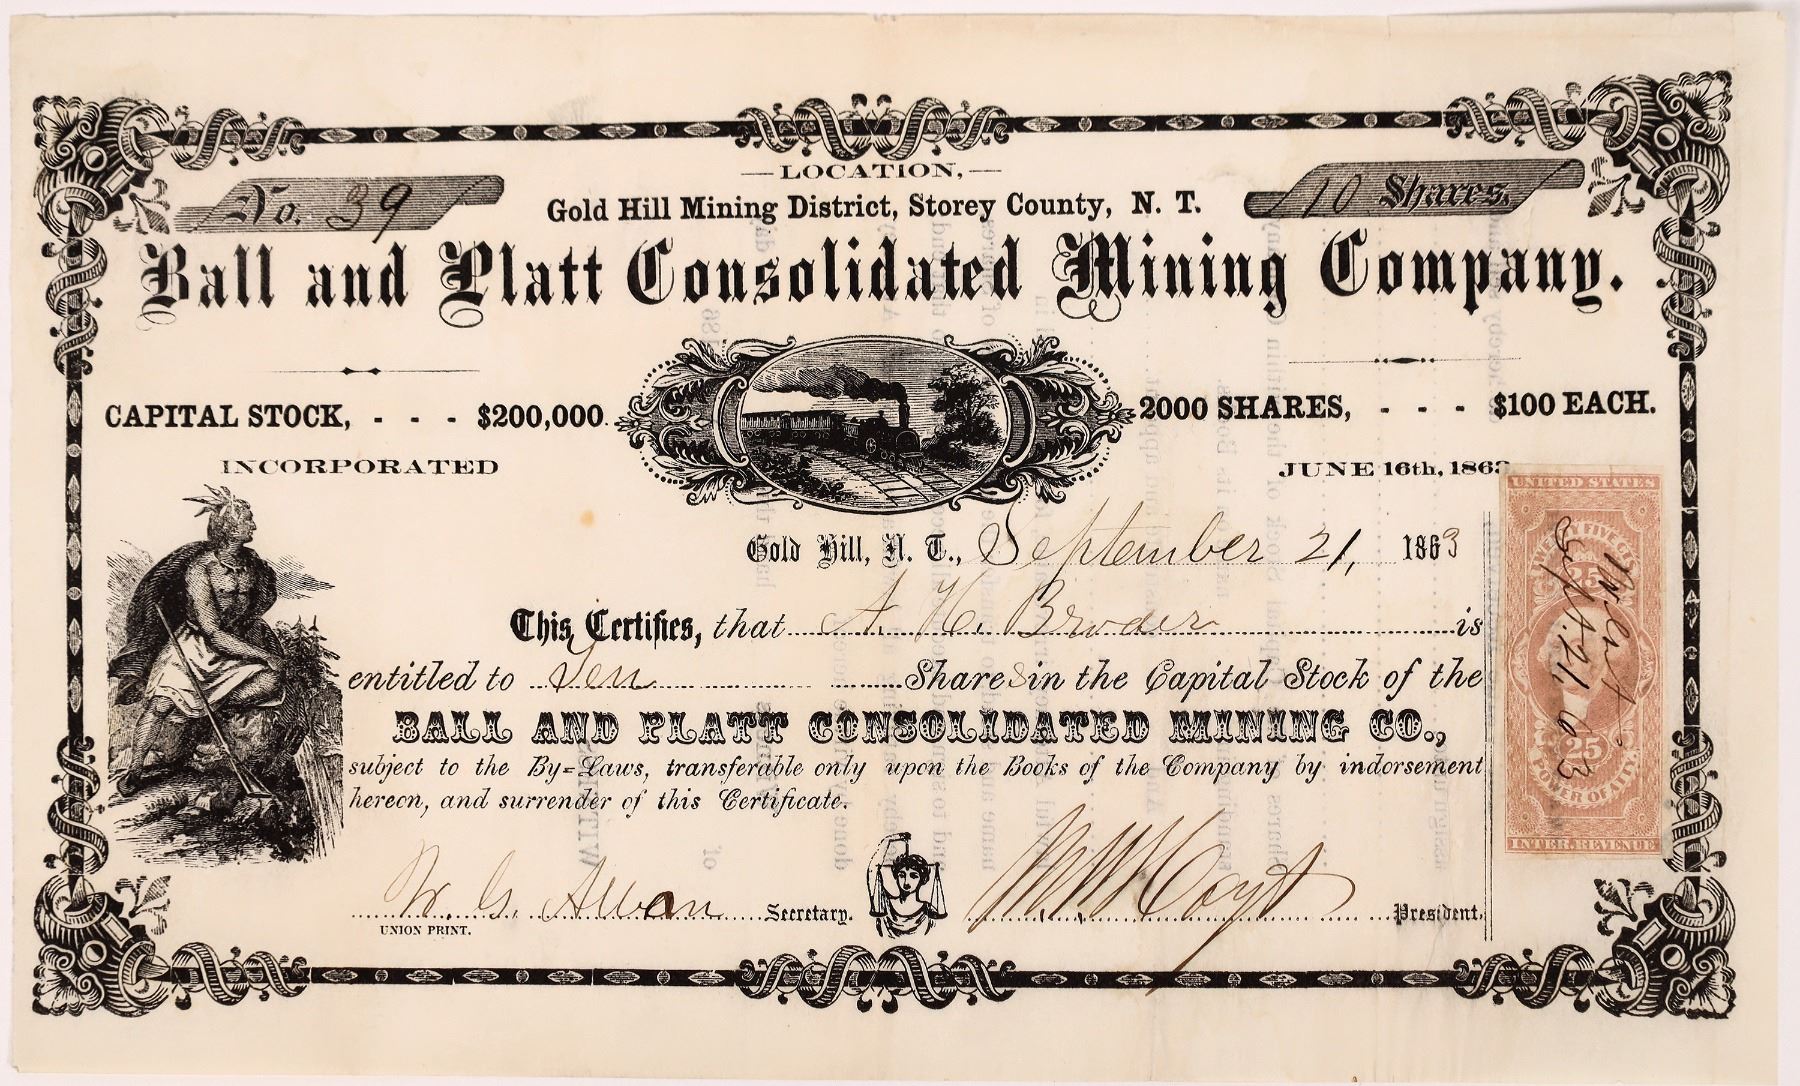 LOCATION,
No. 39
Gold Hill Mining District, Storey County, N. T.
10 Shares.
Ball and Platt Consolidated Mining Company.
CAPITAL STOCK, - - - $200,000.
2000 SHARES, - - - $100 EACH.
INCORPORATED
JUNE 16th, 1863
Gold Hill, N. T., September 21, 1863
This Certifies, that A. H. Broder is
entitled to Ten Shares in the Capital Stock of the
BALL AND PLATT CONSOLIDATED MINING CO.,
subject to the By-Laws, transferable only upon the Books of the Company by indorsement
hereon, and surrender of this Certificate.
W. G. Alban Secretary.
President.
UNION PRINT.
UNITED STATES
TWENTY FIVE CTS
25
25
POWER OF ATTY.
INTER. REVENUE
Sept. 21 63